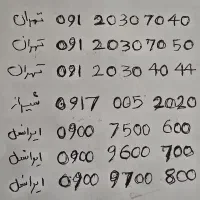 تهران 091 2030 70 40
تهران 091 2030 70 50
تهران 091 2030 40 44
شیراز 0917 005 2020
ایرانسل 0900 7500 600
ایرانسل 0900 9600 700
ایرانسل 0900 9700 800